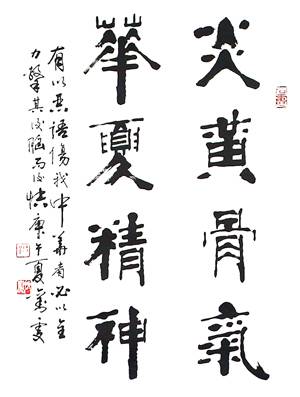 炎黄骨氣
華夏精神
有以惡語傷我中華者必以全
力擊其後腦而後快庚午夏